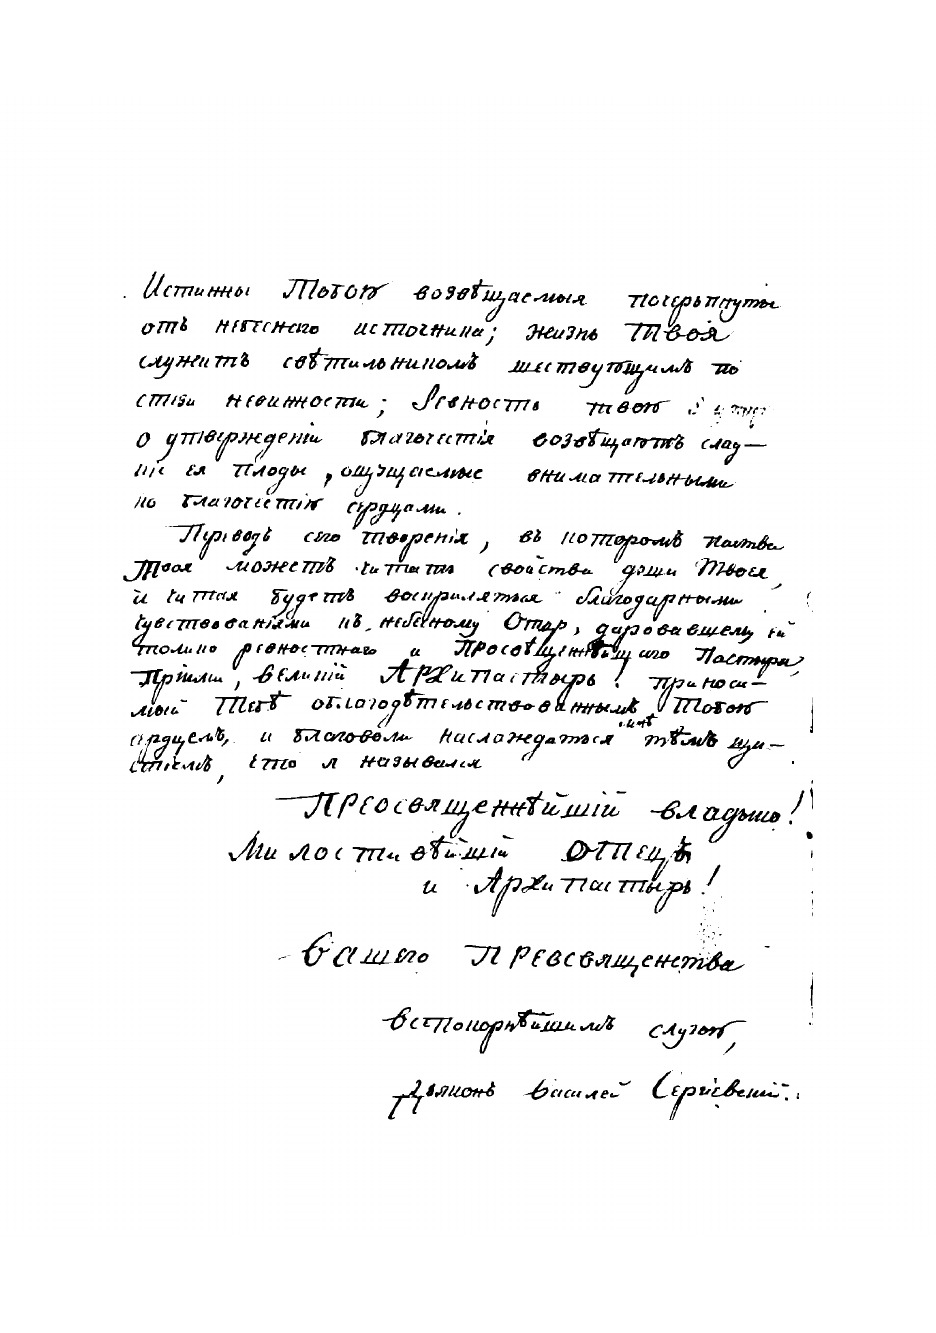 Истинны Тобою возвѣщаемыя почерьпнуты
отъ небеснаго источника; жизнь Твоя
служитъ свѣтильникомъ шествующимъ по
стези невинности; Ревность твою
о утвержденіи благочестія возвѣщаютъ слад—
кіе ея плоды, ощущаемые внимательными
ко благочестію сердцами.
Переводъ сего творенія, въ которомъ паства
Твоя можетъ читать свойства души Твоея,
и читая будетъ восприлятъся благодарными
чувствованіями къ небесному Отцу, даровавшему ей
толико ревностнаго и Просвѣщеннѣйшаго Пастыря,
Пріими, великій Архипастырь! приноси—
мый Тебѣ облагодѣтельствованнымъ Тобою
сердцемъ, и благоволи наслаждаться мнѣ тѣмъ ща—
стіемъ, что я назывался
Преосвященнѣйшій владыко!
Милостивѣйшій Отецъ
и Архипастырь!
Вашего Преосвященства
всепокорнѣйшимъ слугою,
Дьяконъ Василей Сергіевскій.